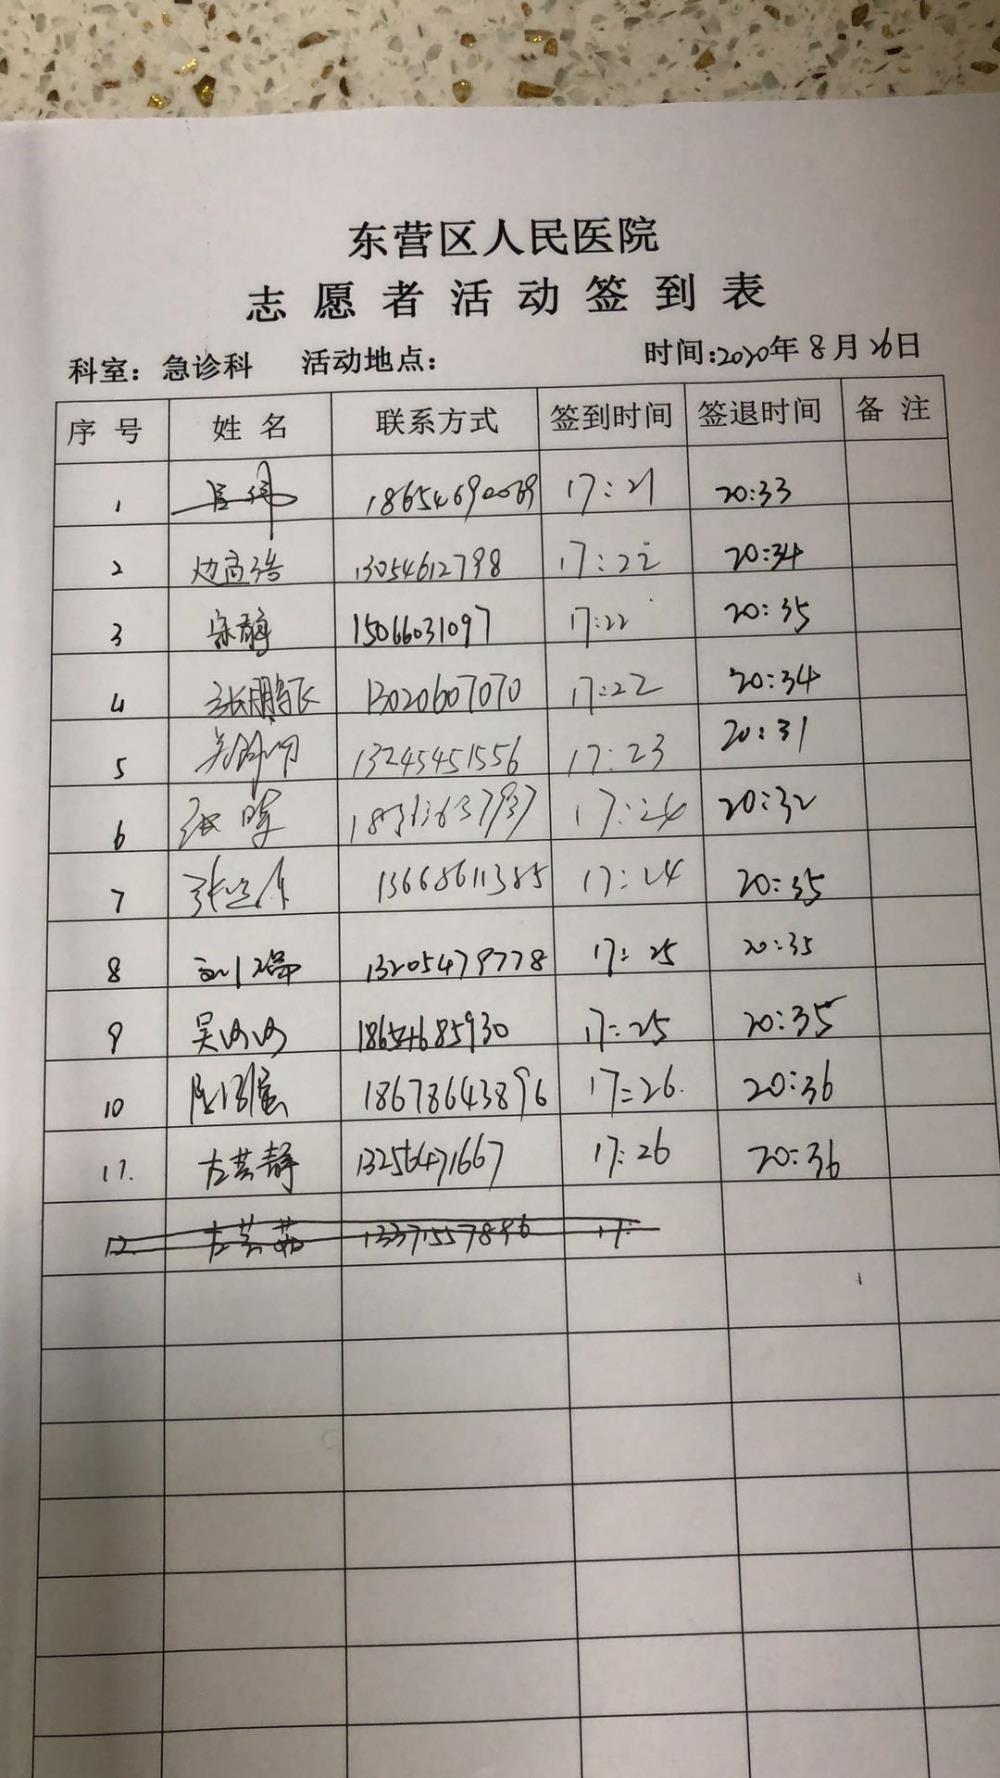 东营区人民医院
志愿者活动签到表
科室：急诊科 活动地点： 时间：2020年8月26日
序号 姓名 联系方式 签到时间 签退时间 备注
1 18654690069 17:21 20:33
2 13054612798 17:22 20:34
3 宋静 15066031097 17:22 20:35
4 张鹏飞 13020607070 17:22 20:34
5 13245451556 17:23 20:31
6 17:24 20:32
7 13668611385 17:24 20:35
8 13205479778 17:25 20:35
9 吴沙沙 18654685930 17:25 20:35
10 18678643896 17:26 20:36
11. 左芸静 13256471667 17:26 20:36
12 左芸茹 13371557896 17: